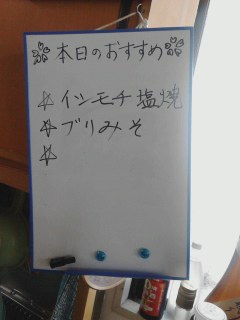 本日のおすすめ
☆イシモチ塩焼
☆ブリみそ
☆